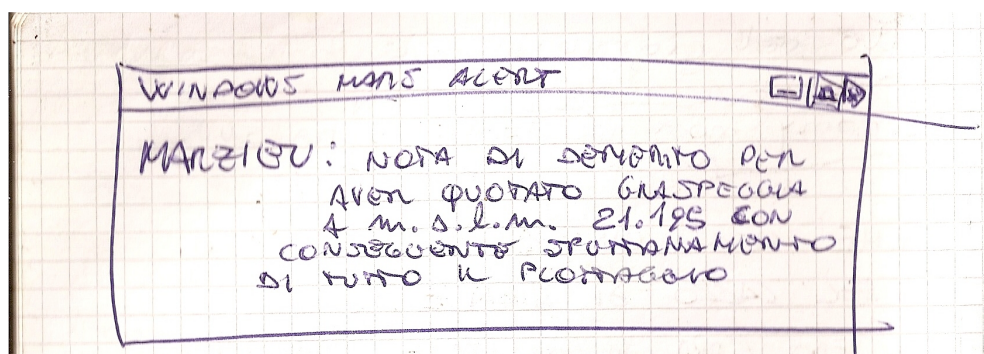 WINDOWS MARS ALERT
MARZIEU: NOTA DI DEMERITO PER
AVER QUOTATO GRASPEGGIA
A m.s.l.m. 21.195 CON
CONSEGUENTE SPUTTANAMENTO
DI TUTTO IL PLOTTAGGIO